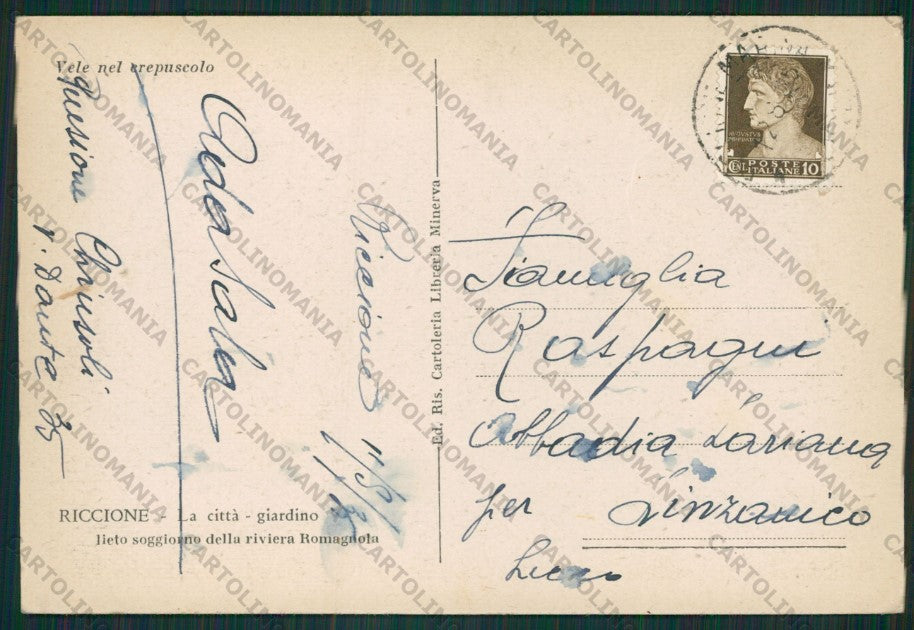 Vele nel crepuscolo
Pensione Chiusoli
V. Dante 35
Ada Sala
Riccione
RICCIONE - La città - giardino
lieto soggiorno della riviera Romagnola
Ed. Ris. Cartoleria Libreria Minerva
POSTE
ITALIANE
CENT. 10
Famiglia
Raspagni
Abbadia Lariana
per Linzanico
Lecco
CARTOLINOMANIA